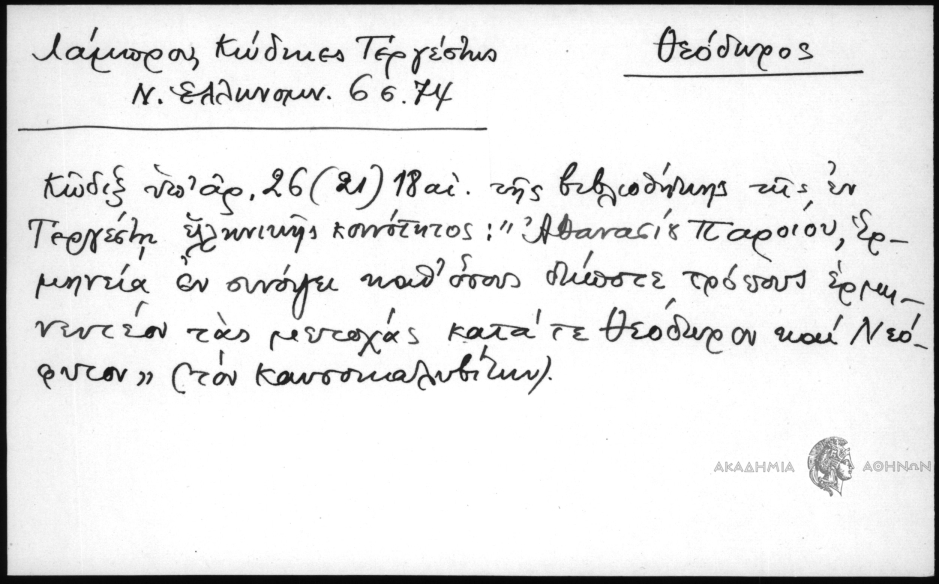 Λάμπρος Κώδικες Τεργέστης
Θεόδωρος
Ν. Ἑλληνομν. 6 σ. 74
Κῶδιξ ὑπ' ἀρ. 26 (21) 18 αἰ. τῆς βιβλιοθήκης τῆς ἐν
Τεργέστῃ ἑλληνικῆς κοινότητος: "Ἀθανασίου Παρίου, Ἑρ-
μηνεία ἐν συνόψει καθ' ὅσους δήποτε τρόπους ἑρμη-
νευτέον τὰς μετοχάς κατά τε Θεόδωρον καί Νεό-
φυτον» (τόν Καυσοκαλυβίτην).
ΑΚΑΔΗΜΙΑ ΑΘΗΝΩΝ